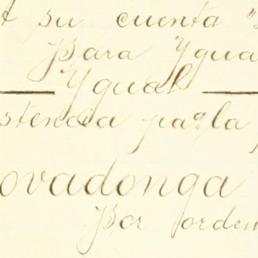 su cuenta
Para Ygua
Ygual
stencia pa la
ovadonga
Por orden